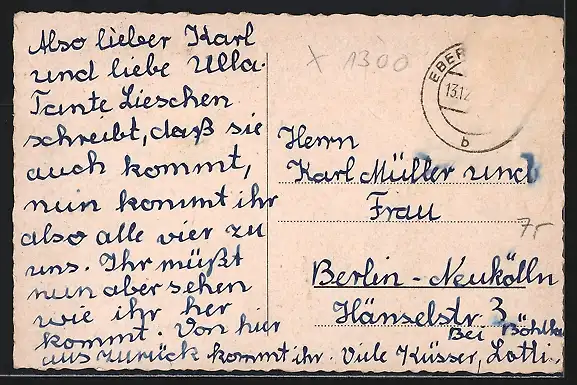 Also lieber Karl
und liebe Ulla.
Tante Lieschen
schreibt, daß sie
auch kommt,
nun kommt ihr
also alle vier zu
uns. Ihr müßt
nun aber sehen
wie ihr her
kommt. Von hier
aus zurück kommt ihr. Viele Küsser, Lotti.
x 1300
EBER
13.12
b
Herrn
Karl Müller und
Frau
75
Berlin-Neukölln
Hänselstr. 3
Bei